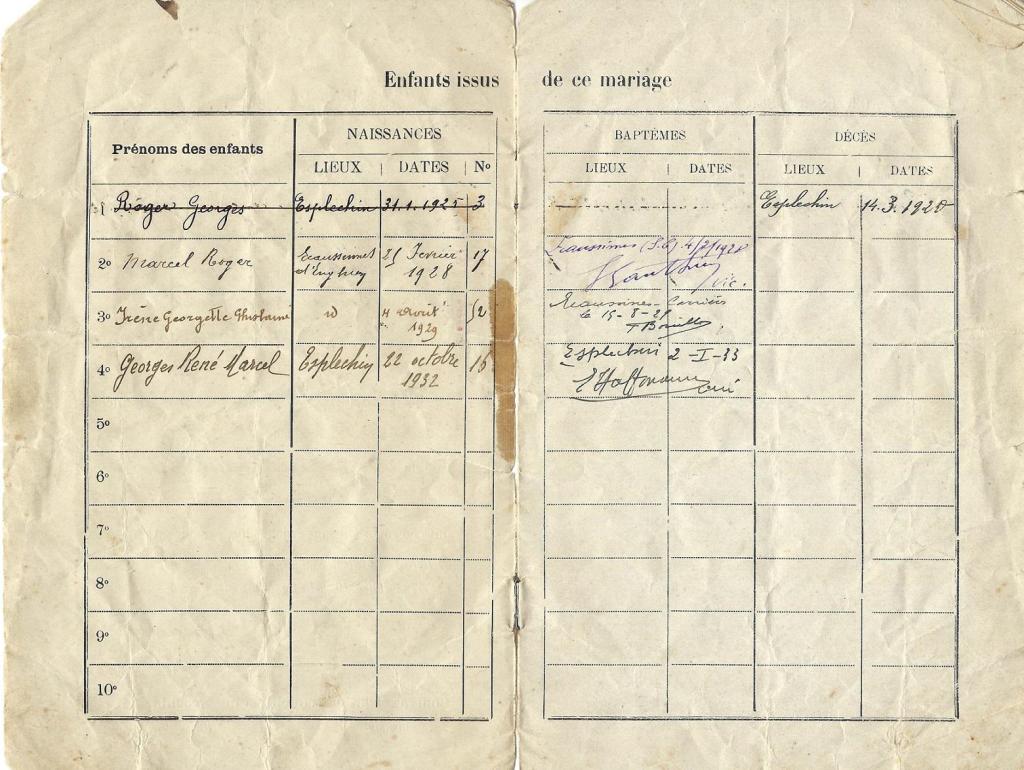 Enfants issus de ce mariage
Prénoms des enfants
NAISSANCES
LIEUX DATES No
BAPTÊMES
LIEUX DATES
DÉCÈS
LIEUX DATES
1 Roger Georges Esplechin 31.1.1925 3 Esplechin 14.3.1925
2o Marcel Roger Ecaussinnes d'Enghien Fevrier 1928 17
4/2/1928
vic.
3o Irène Georgette Ghislaine id 4 1929
Ecaussines-Carrières
le 15-8-29
4o Georges René Marcel Esplechin 22 octobre 1932 15 Esplechin 2-I-33
Hoffmann
curé
5o
6o
7o
8o
9o
10o